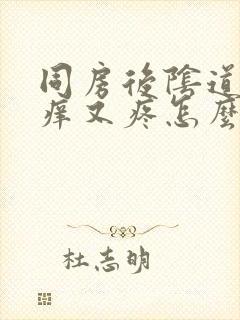 同房後陰道
癢又疼怎麼
杜志明